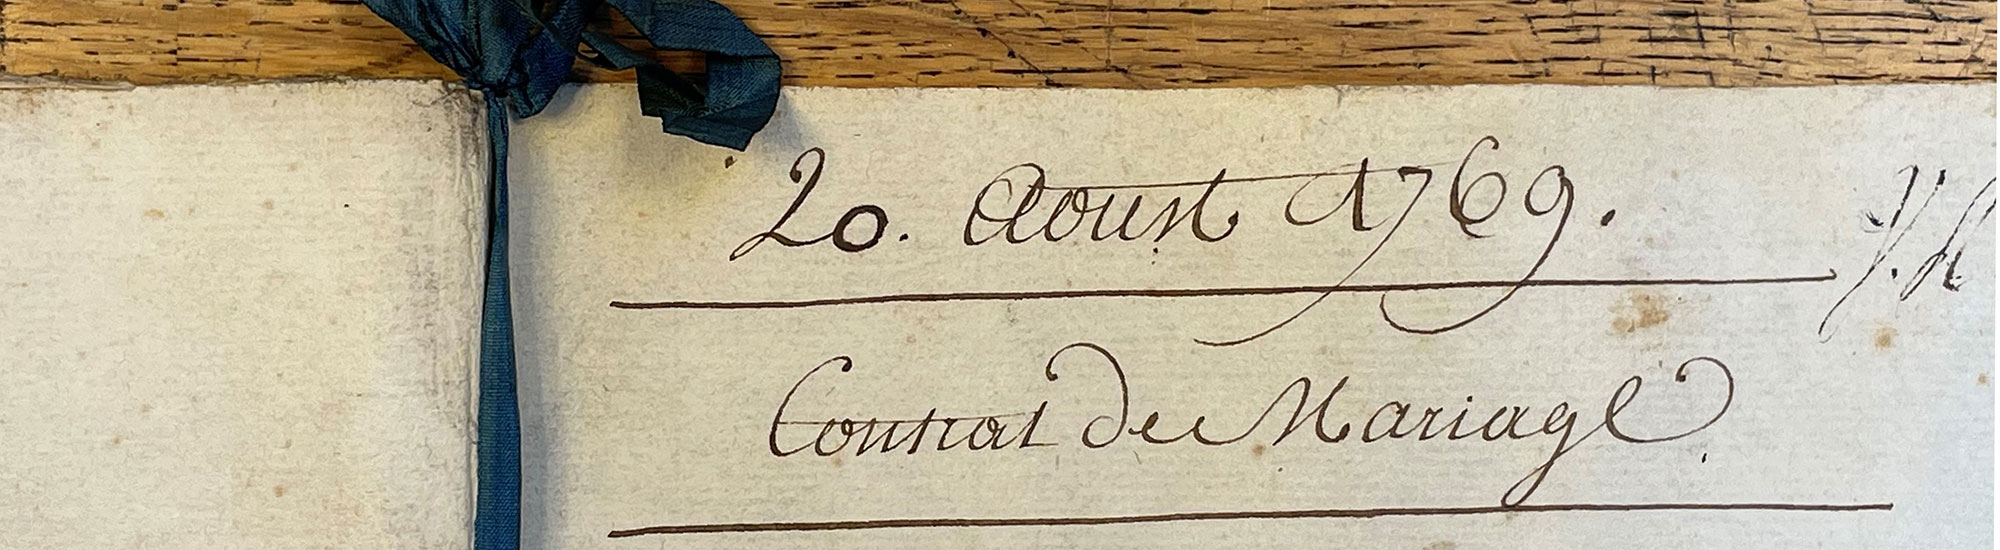 20. Aoust 1769.
Contrat de Mariage